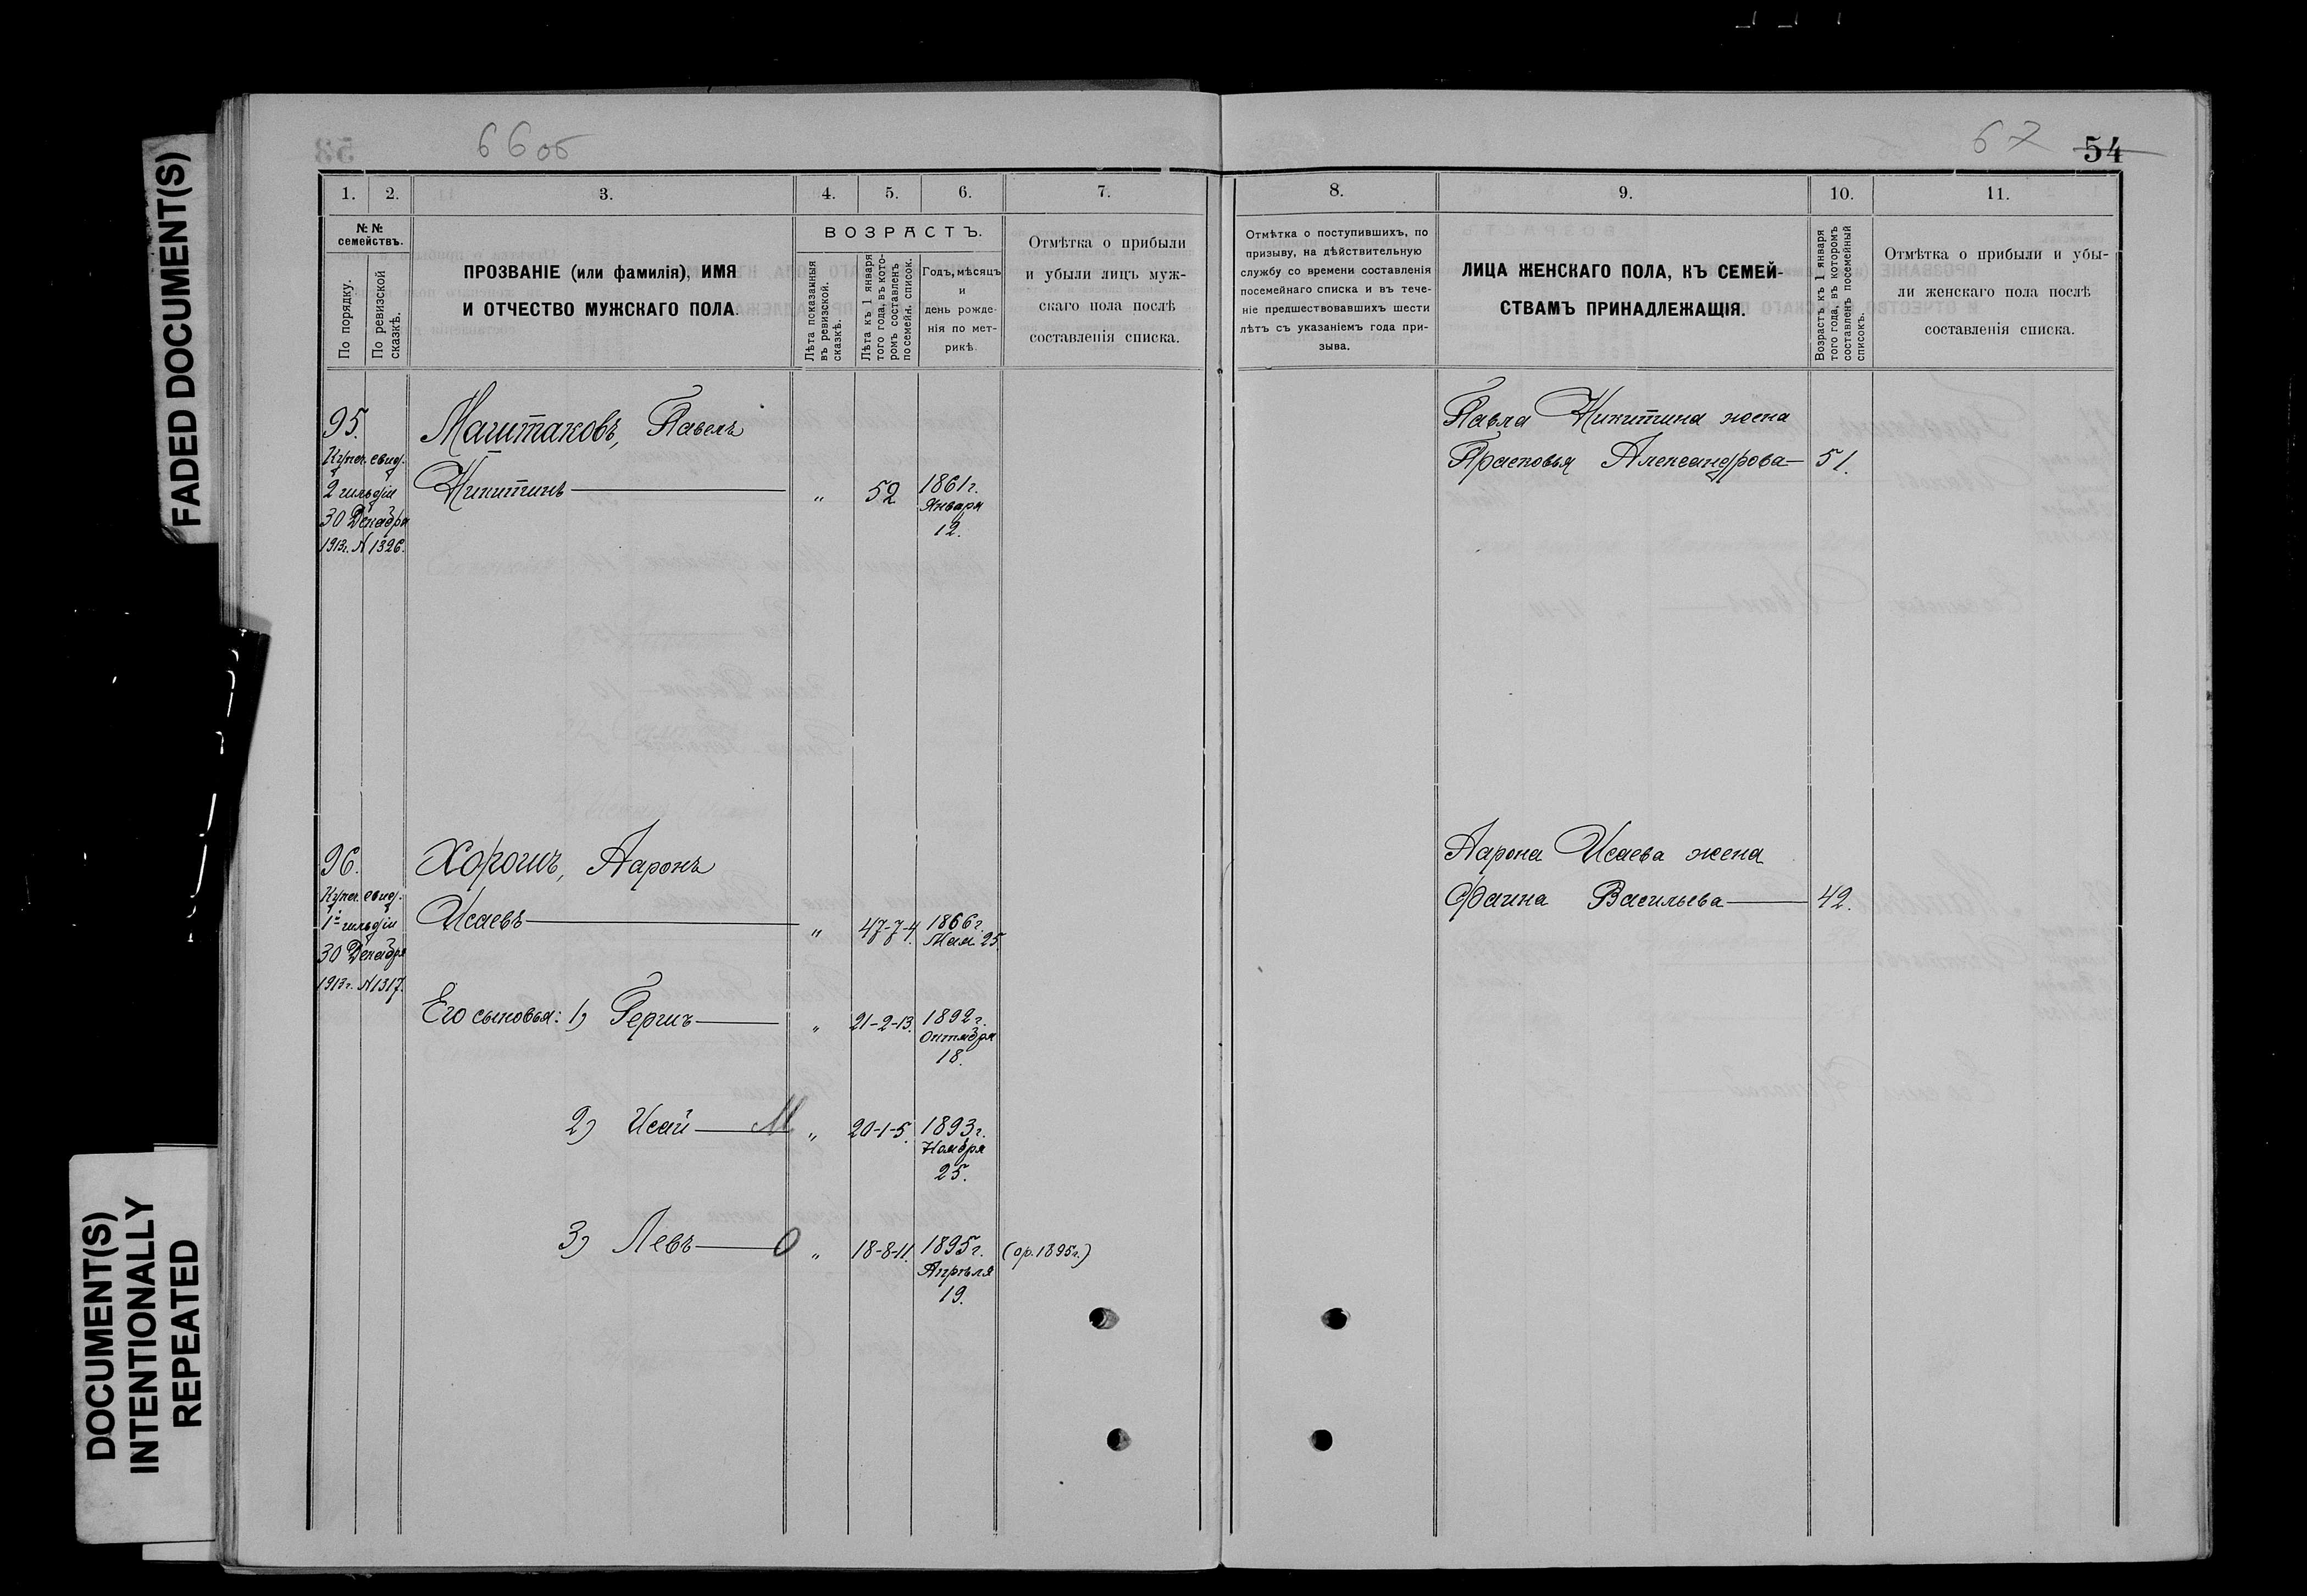 FADED DOCUMENT(S)
DOCUMENT(S)
INTENTIONALLY
REPEATED
66об
1. 2. 3. 4. 5. 6. 7.
№ №
семействъ.
По порядку.
По ревизской
сказкѣ.
ПРОЗВАНІЕ (или фамилія), ИМЯ
И ОТЧЕСТВО МУЖСКАГО ПОЛА.
ВОЗРАСТЪ.
Лѣта показанныя
въ ревизской.
сказкѣ.
Лѣта къ 1 января
того года, въ кото-
ромъ составленъ
посемейн. список.
Годъ, мѣсяцъ
и
день рожде-
нія по мет-
рикѣ.
Отмѣтка о прибыли
и убыли лицъ муж-
скаго пола послѣ
составленія списка.
95.
Купеч. свид.
2 гильдіи
30 Декабря
1913г. N 1326.
Маштаковъ, Павелъ
Никитинъ „ 52 1861г.
Января
12.
96.
Купеч. свид.
1й гильдіи
30 Декабря
1913г. N 1317.
Хорошъ, Ааронъ
Исаевъ „ 47-7-4. 1866г.
Мая 25.
Его сыновья: 1) Гершъ „ 21-2-13. 1892г.
Октября
18.
2) Исай М „ 20-1-5. 1893г.
Ноября
25.
3) Левъ О „ 18-8-11. 1895г. (ор. 1895г.)
Апрѣля
19.
67 54
8. 9. 10. 11.
Отмѣтка о поступившихъ, по
призыву, на дѣйствительную
службу со времени составленія
посемейнаго списка и въ тече-
ніе предшествовавшихъ шести
лѣтъ съ указаніемъ года при-
зыва.
ЛИЦА ЖЕНСКАГО ПОЛА, КЪ СЕМЕЙ-
СТВАМЪ ПРИНАДЛЕЖАЩІЯ.
Возрастъ къ 1 января
того года, въ которомъ
составленъ посемейный
списокъ.
Отмѣтка о прибыли и убы-
ли женскаго пола послѣ
составленія списка.
Павла Никитина жена
Прасковья Александрова 51.
Аарона Исаева жена
Фаина Васильева 42.